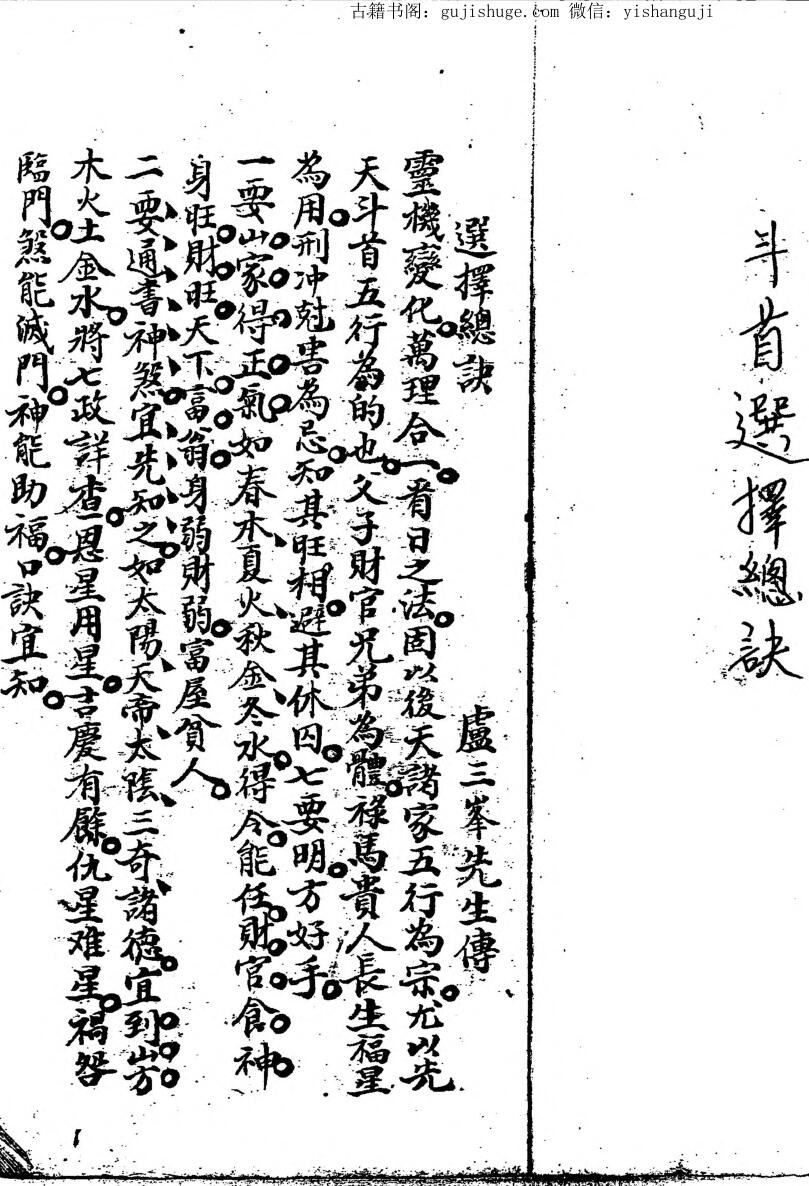 古籍书阁：gujishuge.com 微信：yishanguji
斗首選擇總訣
選擇總訣　盧三峯先生傳
靈機變化。萬理合一。看日之法。固以後天諸家五行為宗。尤以先
天斗首五行為的也。父子財官兄弟為體。祿馬貴人長生福星
為用。刑冲尅害為忌。知其旺相。避其休囚。七要明。方好手。
一要山家得正氣。如春木、夏火、秋金、冬水。得令。能任財官食神。
身旺財旺。天下富翁。身弱財弱。富屋貧人。
二要通書神煞。宜先知之。如太陽、天帝、太陰、三奇、諸德。宜到山方。
木火土金水。將七政詳查。恩星用星。吉慶有餘。仇星难星。禍咎
臨門。煞能滅門。神能助福。口訣宜知。
1